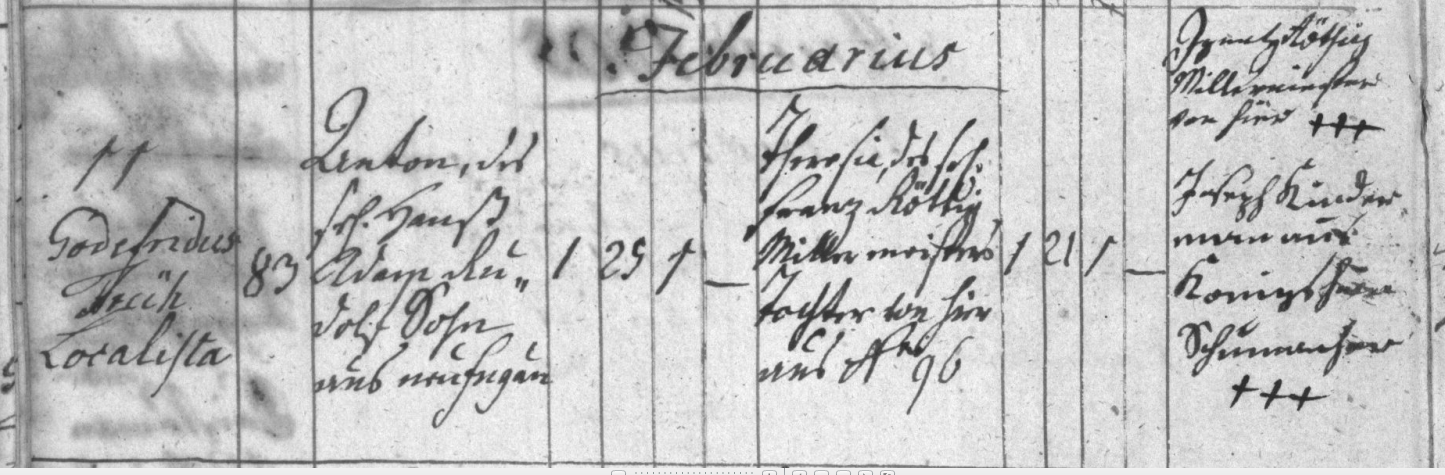 Februarius
11
Godefridus
Früh
Localista
83
Anton, des
sel. Hanß
Adam Ru„
dolf Sohn
aus
1 25 1 —
Theresia, des sel.
Franz Röttig
Müllermeisters
tochter von hier
aus No 96
1 21 1 —
Ignatz Röttig
Müllermeister
von hier +++
Joseph Kinder
man aus
Königshain
Schumacher
+++